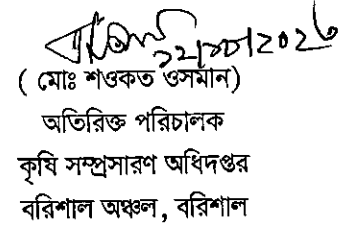 ২২/০১/২০২৬
( মোঃ শওকত ওসমান)
অতিরিক্ত পরিচালক
কৃষি সম্প্রসারণ অধিদপ্তর
বরিশাল অঞ্চল, বরিশাল